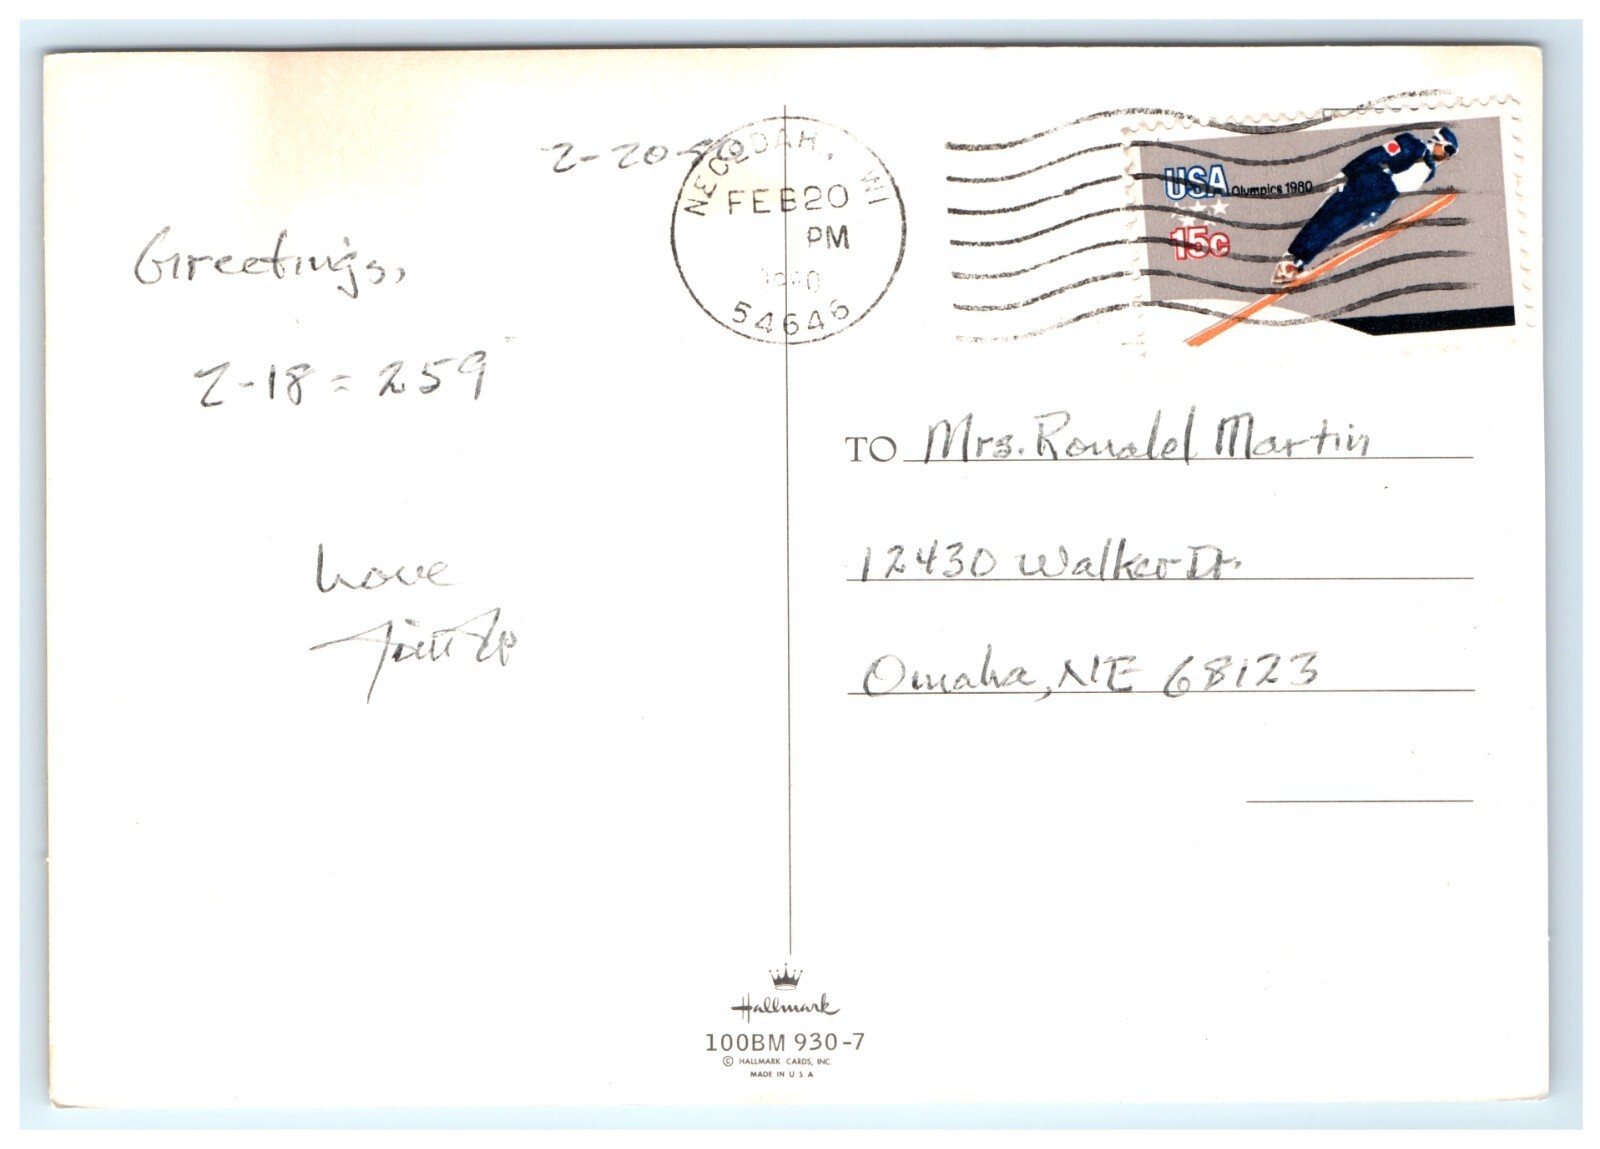 2-20-80
Greetings,
2-18 = 259
Love
NECEDAH, WI
FEB 20
PM
1980
54646
USA Olympics 1980
15c
TO Mrs. Ronald Martin
12430 Walker Dr.
Omaha, NE 68123
Hallmark
100BM 930-7
© HALLMARK CARDS, INC.
MADE IN U S A